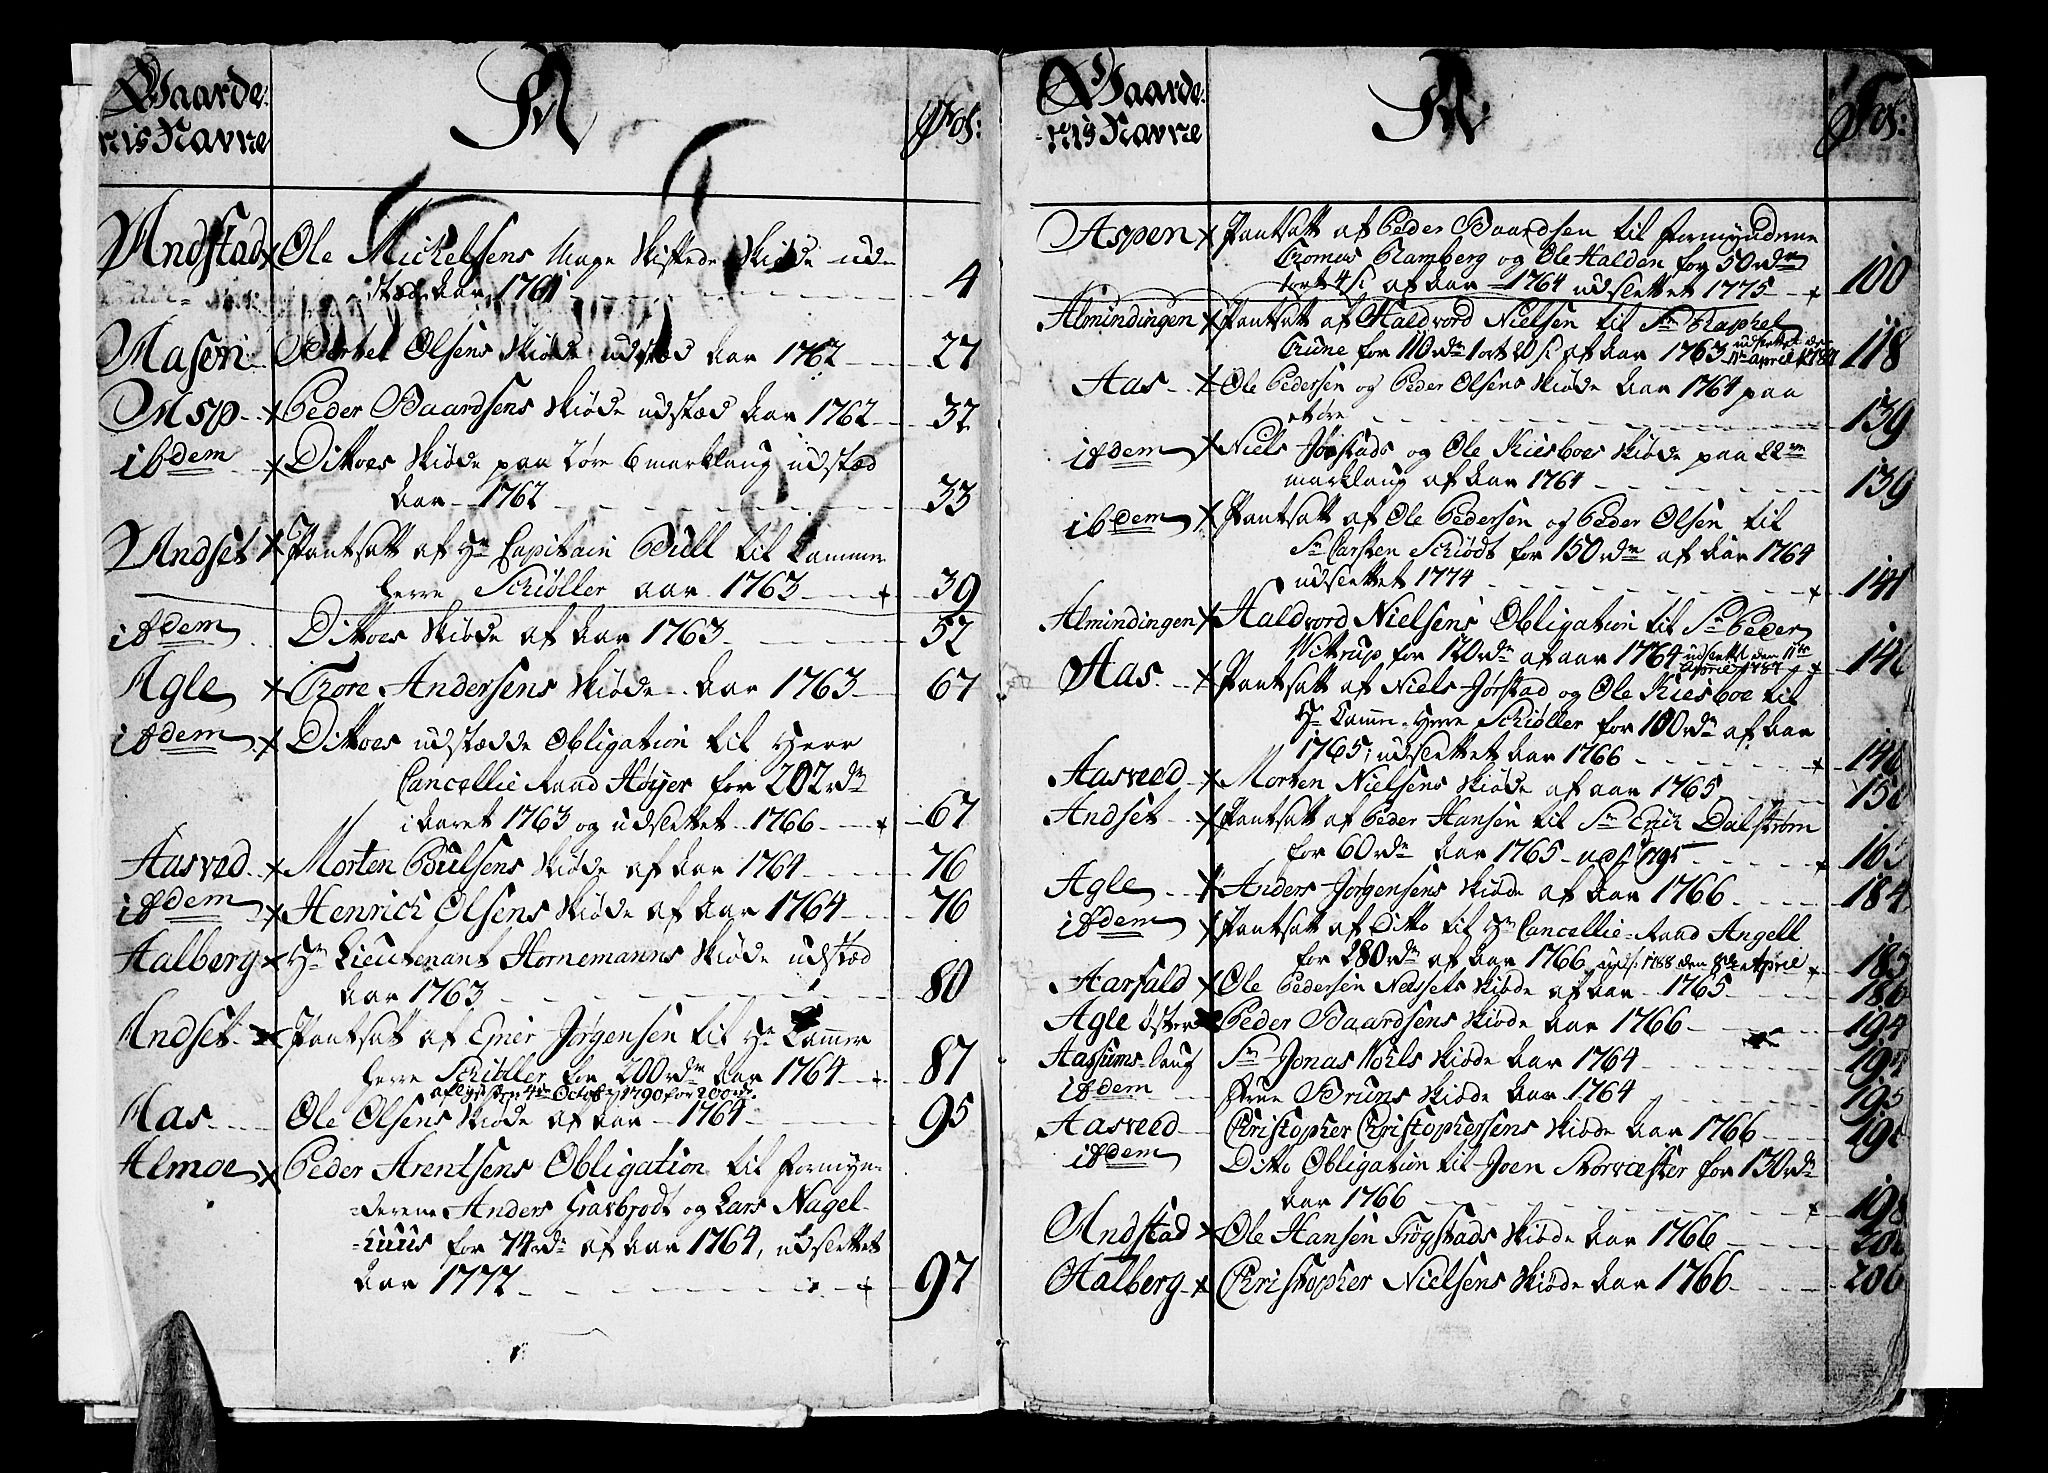 Gaarde-
rnis Navne
A
Fol:
Andstad Ole Mickelsens Mage Skiftede Skiøde ud-
stæd Aar 1761 4
Aasen Bertel Olsens Skiøde udstæd Aar 1762 27
Asp Peder Baardsens Skiøde udstæd Aar 1762 32
ibdem Dittoes Skiøde paa 2 øre 6 marklaug udstæd
Aar 1762 33
Andset Pantsatt af Hr Capitain Bull til Cammer
Herre Schiøller aar 1763 39
ibdem Dittoes Skiøde af Aar 1763 52
Agle Tore Andersens Skiøde Aar 1763 67
ibdem Dittoes udstædde Obligation til Herr
Cancellie Raad Høyer for 202 rdr
i Aaret 1763 og udslettet 1766 67
Aasved Morten Builsens Skiøde af Aar 1764 76
ibdem Henrich Olsens Skiøde af Aar 1764 76
Aalberg Hr Lieutenant Hornemanns Skiøde udstæd
Aar 1763 80
Andset Pantsatt af Ener Jørgensen til Hr Cammer
Herre Schiøller for 200 rdr Aar 1764 87
aflyst den 4de Octob 1790 for 200 rd.
Aas Ole Olsens Skiøde af Aar 1764 95
Almoe Peder Arentsens Obligation til Formyn-
derene Anders Gravbrodt og Lars Nagel-
huus for 74 rdr af Aar 1764, udslettet
Aar 1772 97
Gaarde-
rnis Navne
A
Fol:
Aspen Pantsatt af Peder Baardsen til Formynderne
Tromus Ramberg og Ole Halden for 50 rdr
1 ort 4 s af Aar 1764 udslettet 1775 100
Almindingen Pantsatt af Haldvord Nielsen til Sr Raphel
Trune for 110 rdr 1 ort 20 s af Aar 1763 udslettet den
11te April 118
Aas Ole Pedersen og Peder Olsens Skiøde Aar 1764 paa
et øre 139
ibdem Niels Jørstads og Ole Kiesboes Skiøde paa 22
marklaug af Aar 1764 139
ibdem Pantsatt af Ole Pedersen og Peder Olsen til
Sr Carsten Schiødt for 150 rdr af Aar 1764
udslettet 1774 141
Almindingen Haldvord Nielsens Obligation til Sr Peder
Wittrup for 120 rdr af Aar 1764 udslettet den 11te
April 1787 146
Aas Pantsatt af Niels Jørstad og Ole Kiesboe til
Hr Camm. Herre Schiøller for 100 rdr af Aar
1765, udslettet Aar 1766 146
Aasveed Morten Nielsens Skiøde af Aar 1765
Andset Pantsatt af Peder Hansen til Sr Erich Dalstrøm
for 60 rdr Aar 1765 uds 1795
Agle Anders Jørgensens Skiøde af Aar 1766 184
ibdem Pantsatt af Ditto til Hr Cancellie Raad Angell
for 280 rdr af Aar 1766 uds. 1788 den 8de April 185
Aarfald Ole Pedersen Nessets Skiøde af Aar 1765 186
Agle Øster Peder Baardsens Skiøde Aar 1766 194
Aassums laug Sr Jonas Wohls Skiøde Aar 1764 194
ibdem Frue Bruns Skiøde Aar 1764 195
Aasveed Christopher Christophersens Skiøde Aar 1766
ibdem Ditto Obligation til Joen Storvæster for 130 rdr
Aar 1766 198
Andstad Ole Hansen Trøgstads Skiøde Aar 1766
Aalberg Christopher Nielsens Skiøde Aar 1766 206